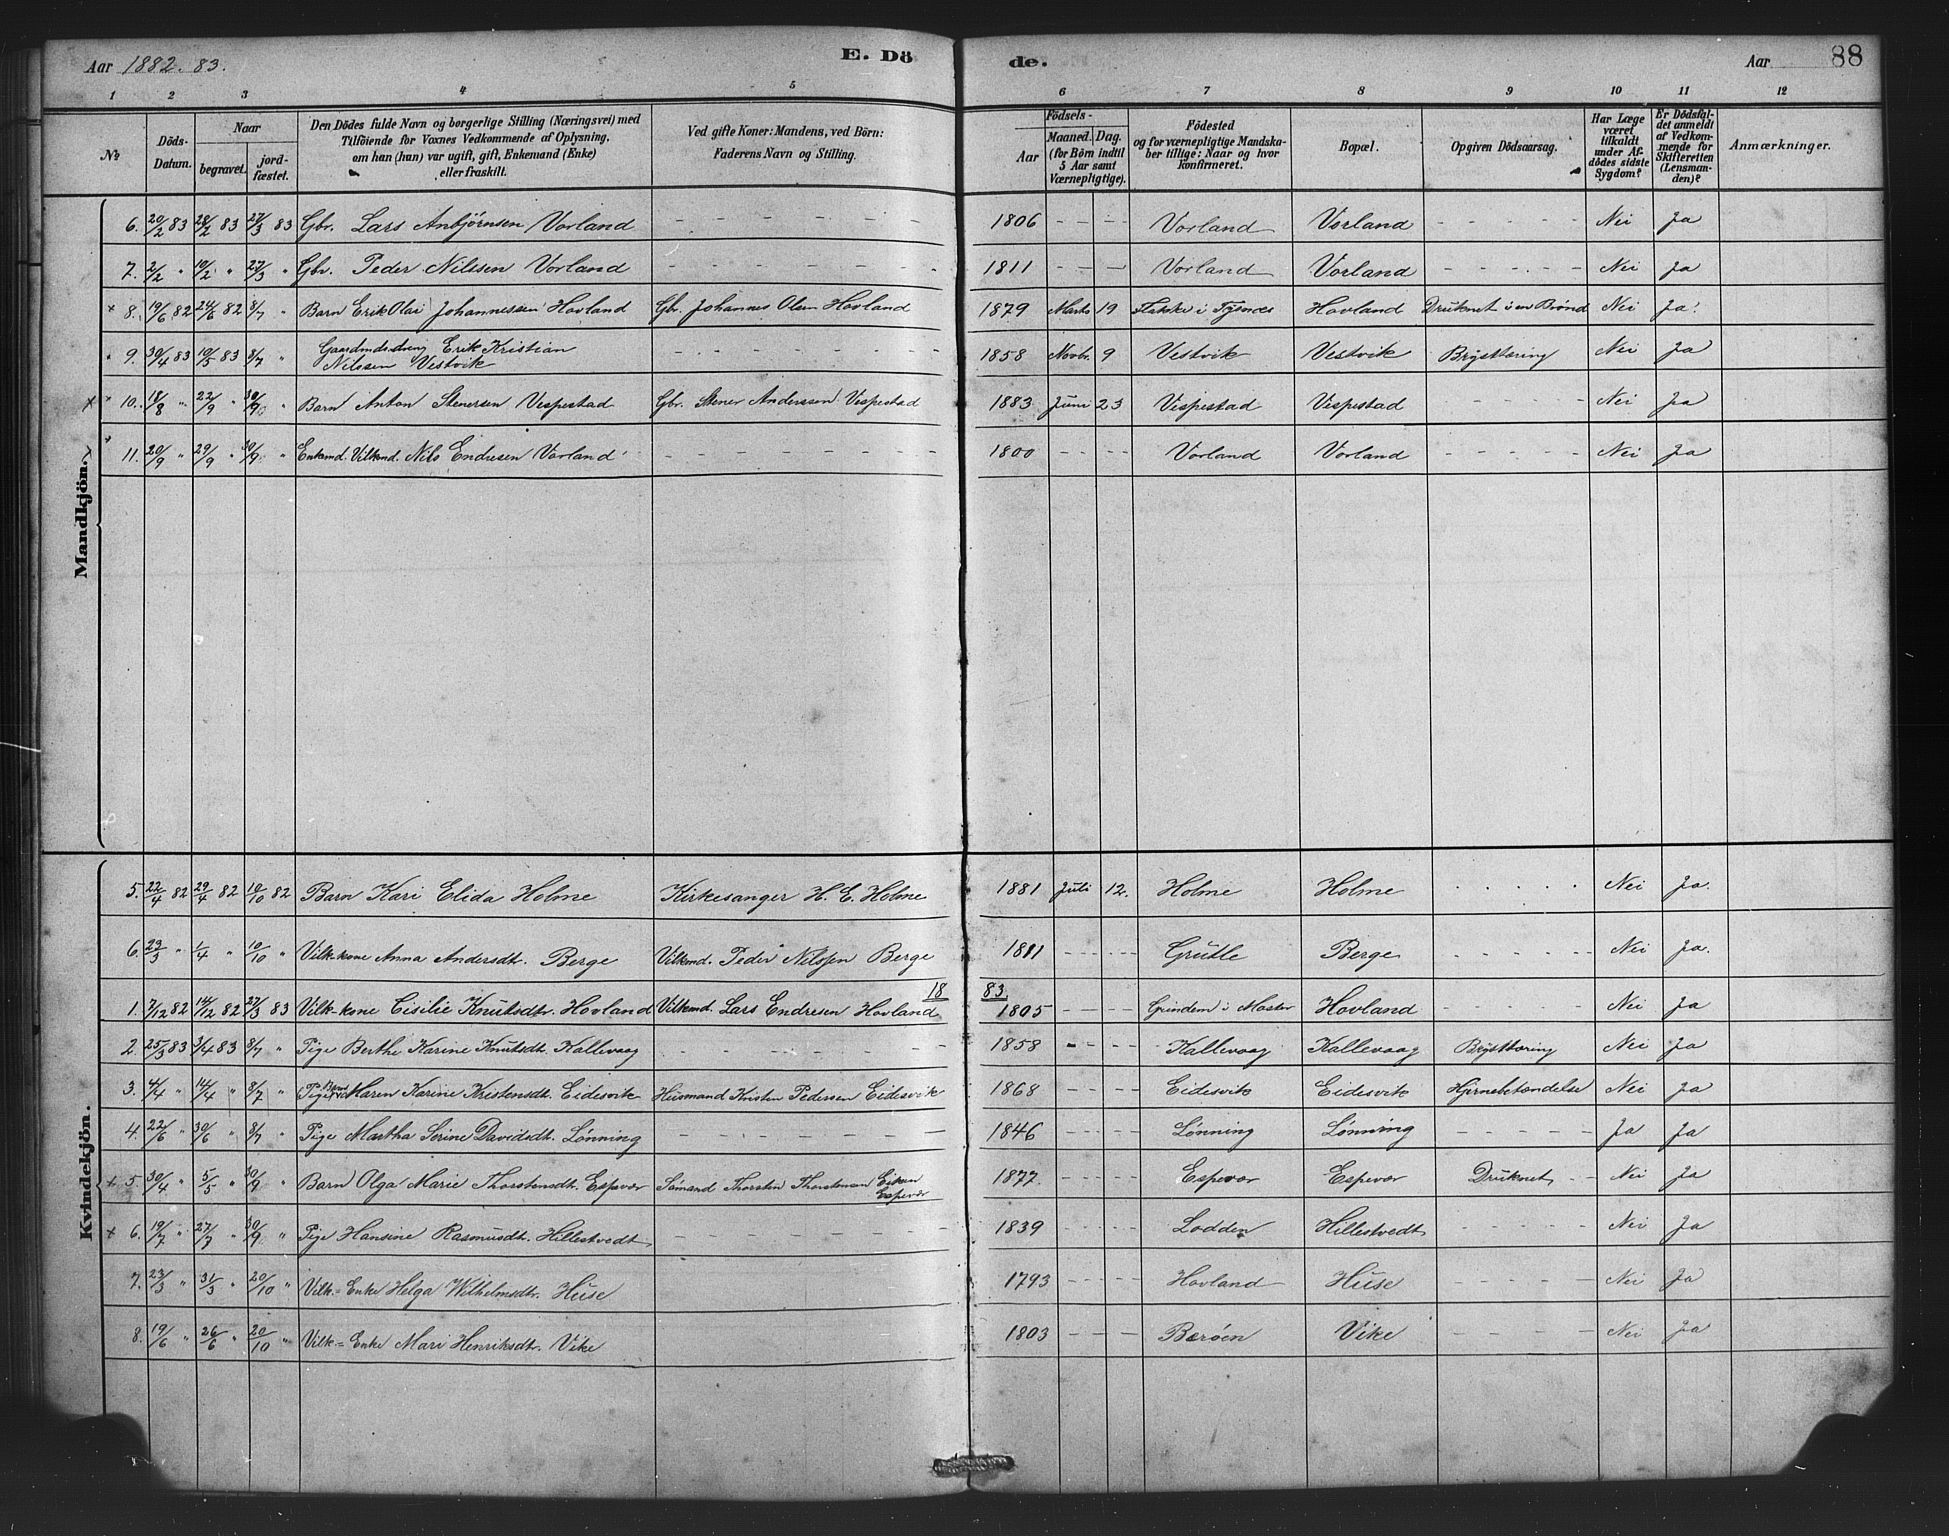 Aar 1882. 83.
E. Dö
de.
Aar
88
1 2 3 4 5 6 7 8 9 10 11 12
№
Döds-
Datum.
Naar
begravet.
jord-
fæstet.
Den Dödes fulde Navn og borgerlige Stilling (Næringsvei) med
Tilföiende for Voxnes Vedkommende af Oplysning,
om han (hun) var ugift, gift, Enkemand (Enke)
eller fraskilt.
Ved gifte Koner: Mandens, ved Börn:
Faderens Navn og Stilling.
Födsels-
Aar
Maaned. Dag.
(for Börn indtil
5 Aar samt
Værnepligtige).
Födested
og for værnepligtige Mandska-
ber tillige: Naar og hvor
konfirmeret.
Bopæl.
Opgiven Dödsaarsag.
Har Læge
været
tilkaldt
under Af-
dödes sidste
Sygdom?
Er Dödsfal-
det anmeldt
af Vedkom-
mende for
Skifteretten
(Lensman-
den)?
Anmærkninger.
Mandkjön.
6. 20/2 83 28/2 83 27/3 83 Gbr. Lars Anbjørnsen Vorland - - - 1806 - - - Vorland Vorland - - - Nei Ja
7. 2/2 " 10/2 " 27/3 " Gbr. Peder Nilssen Vorland - - - 1811 - - - Vorland Vorland - - - Nei Ja
+ 8. 19/6 82 24/6 82 8/7 " Barn Erik Olai Johannessen Hovland Gbr. Johannes Olsen Hovland 1879 Marts 19 Flakke i Tysnæs Hovland Druknet i en Brønd Nei Ja.
9. 30/4 83 10/5 83 8/7 " Gaardmdsdreng Erik Kristian
Nilssen Vestvik - - - 1858 Novbr. 9 Vestvik Vestvik Brysttæring Nei Ja
x + 10. 18/8 " 22/9 " 30/9 " Barn Anton Stenersen Vespestad Gbr. Stener Anderssen Vespestad 1883 Juni 23 Vespestad Vespestad - - - Nei Ja
+ 11. 20/9 " 29/9 " 30/9 " Enkemd. Vilkmd. Nils Endresen Vorland - - - 1800 - - - Vorland Vorland - - - Nei Ja
Kvindekjön.
5. 22/4 82 29/4 82 10/10 82 Barn Kari Elida Holme Kirkesanger H. E. Holme 1881 Juli 12. Holme Holme - - - Nei Ja.
6. 23/3 " 1/4 " 10/10 " Vilk.kone Anna Andersdt. Berge Vilkmd. Peder Nilssen Berge 1811 - - - Grutle Berge - - - Nei Ja.
18 83
1. 7/12 82 14/12 82 27/3 83 Vilk-kone Cisilie Knutsdtr. Hovland Vilkmd. Lars Endresen Hovland 1805 - - - Grindem i Moster Hovland - - - Nei Ja
2. 25/3 83 3/4 83 8/7 " Pige Berthe Karine Knutsdt. Kallevaag - - - 1858 - - - Kallevaag Kallevaag Brysttæring Nei Ja
3. 4/4 " 14/4 " 8/7 " Pige Maren Karine Kristensdt. Eidesvik Husmand Kristen Pedersen Eidesvik 1868 - - - Eidesvik Eidesvik Hjernebetændelse Nei Ja
4. 22/6 " 30/6 " 8/7 " Pige Martha Serine Davidsdt. Lønning - - - 1846 - - - Lønning Lønning - - - Ja Ja
+ 5. 30/4 " 5/5 " 30/9 " Barn Olga Marie Thorstensdt. Espevær Sømand Thorsten Thorstensen
Espevær 1877. - - - Espevær Espevær Druknet. - Nei Ja
+ 6. 19/7 " 27/7 " 30/9 " Pige Hansine Rasmusdt. Hillestvedt - - - 1839 - - - Lodden Hillestvedt - - - Nei Ja
7. 23/3 " 31/3 " 20/10 " Vilk.= Enke Helga Wilhelmsdtr. Huse 1793 - - - Hovland Huse - - - Nei Ja
8. 19/6 " 26/6 " 20/10 " Vilk.= Enke Mari Henriksdtr. Vike 1803 - - - Bærøen Vike - - - Nei Ja